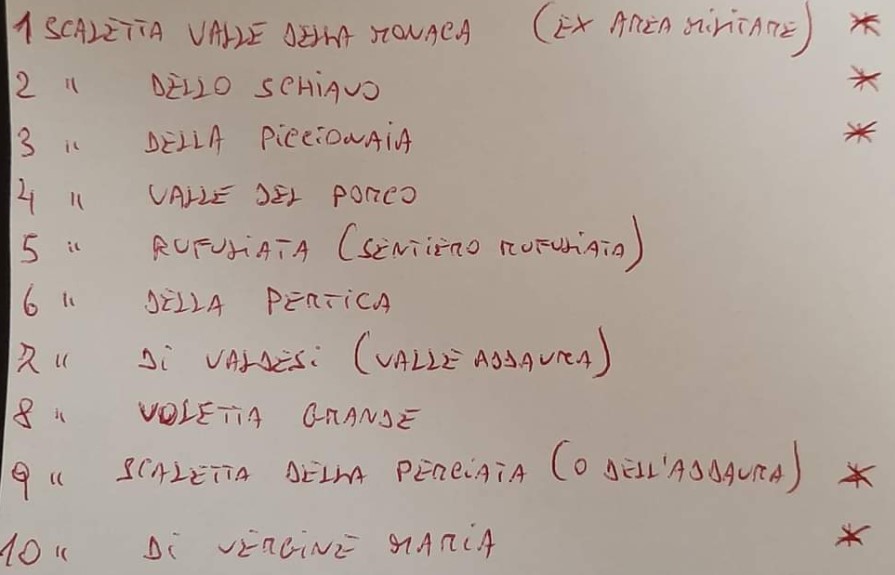 1 SCALETTA VALLE DELLA MONACA (EX AREA MILITARE) *
2 " DELLO SCHIAVO *
3 " DELLA PICCIONAIA *
4 " VALLE DEL PORCO
5 " RUFULIATA (SENTIERO RUFULIATA)
6 " DELLA PERTICA
7 " DI VALDESI (VALLE ADDAURA)
8 " VOLETTA GRANDE
9 " SCALETTA DELLA PERCIATA (O DELL'ADDAURA) *
10 " DI VERGINE MARIA *